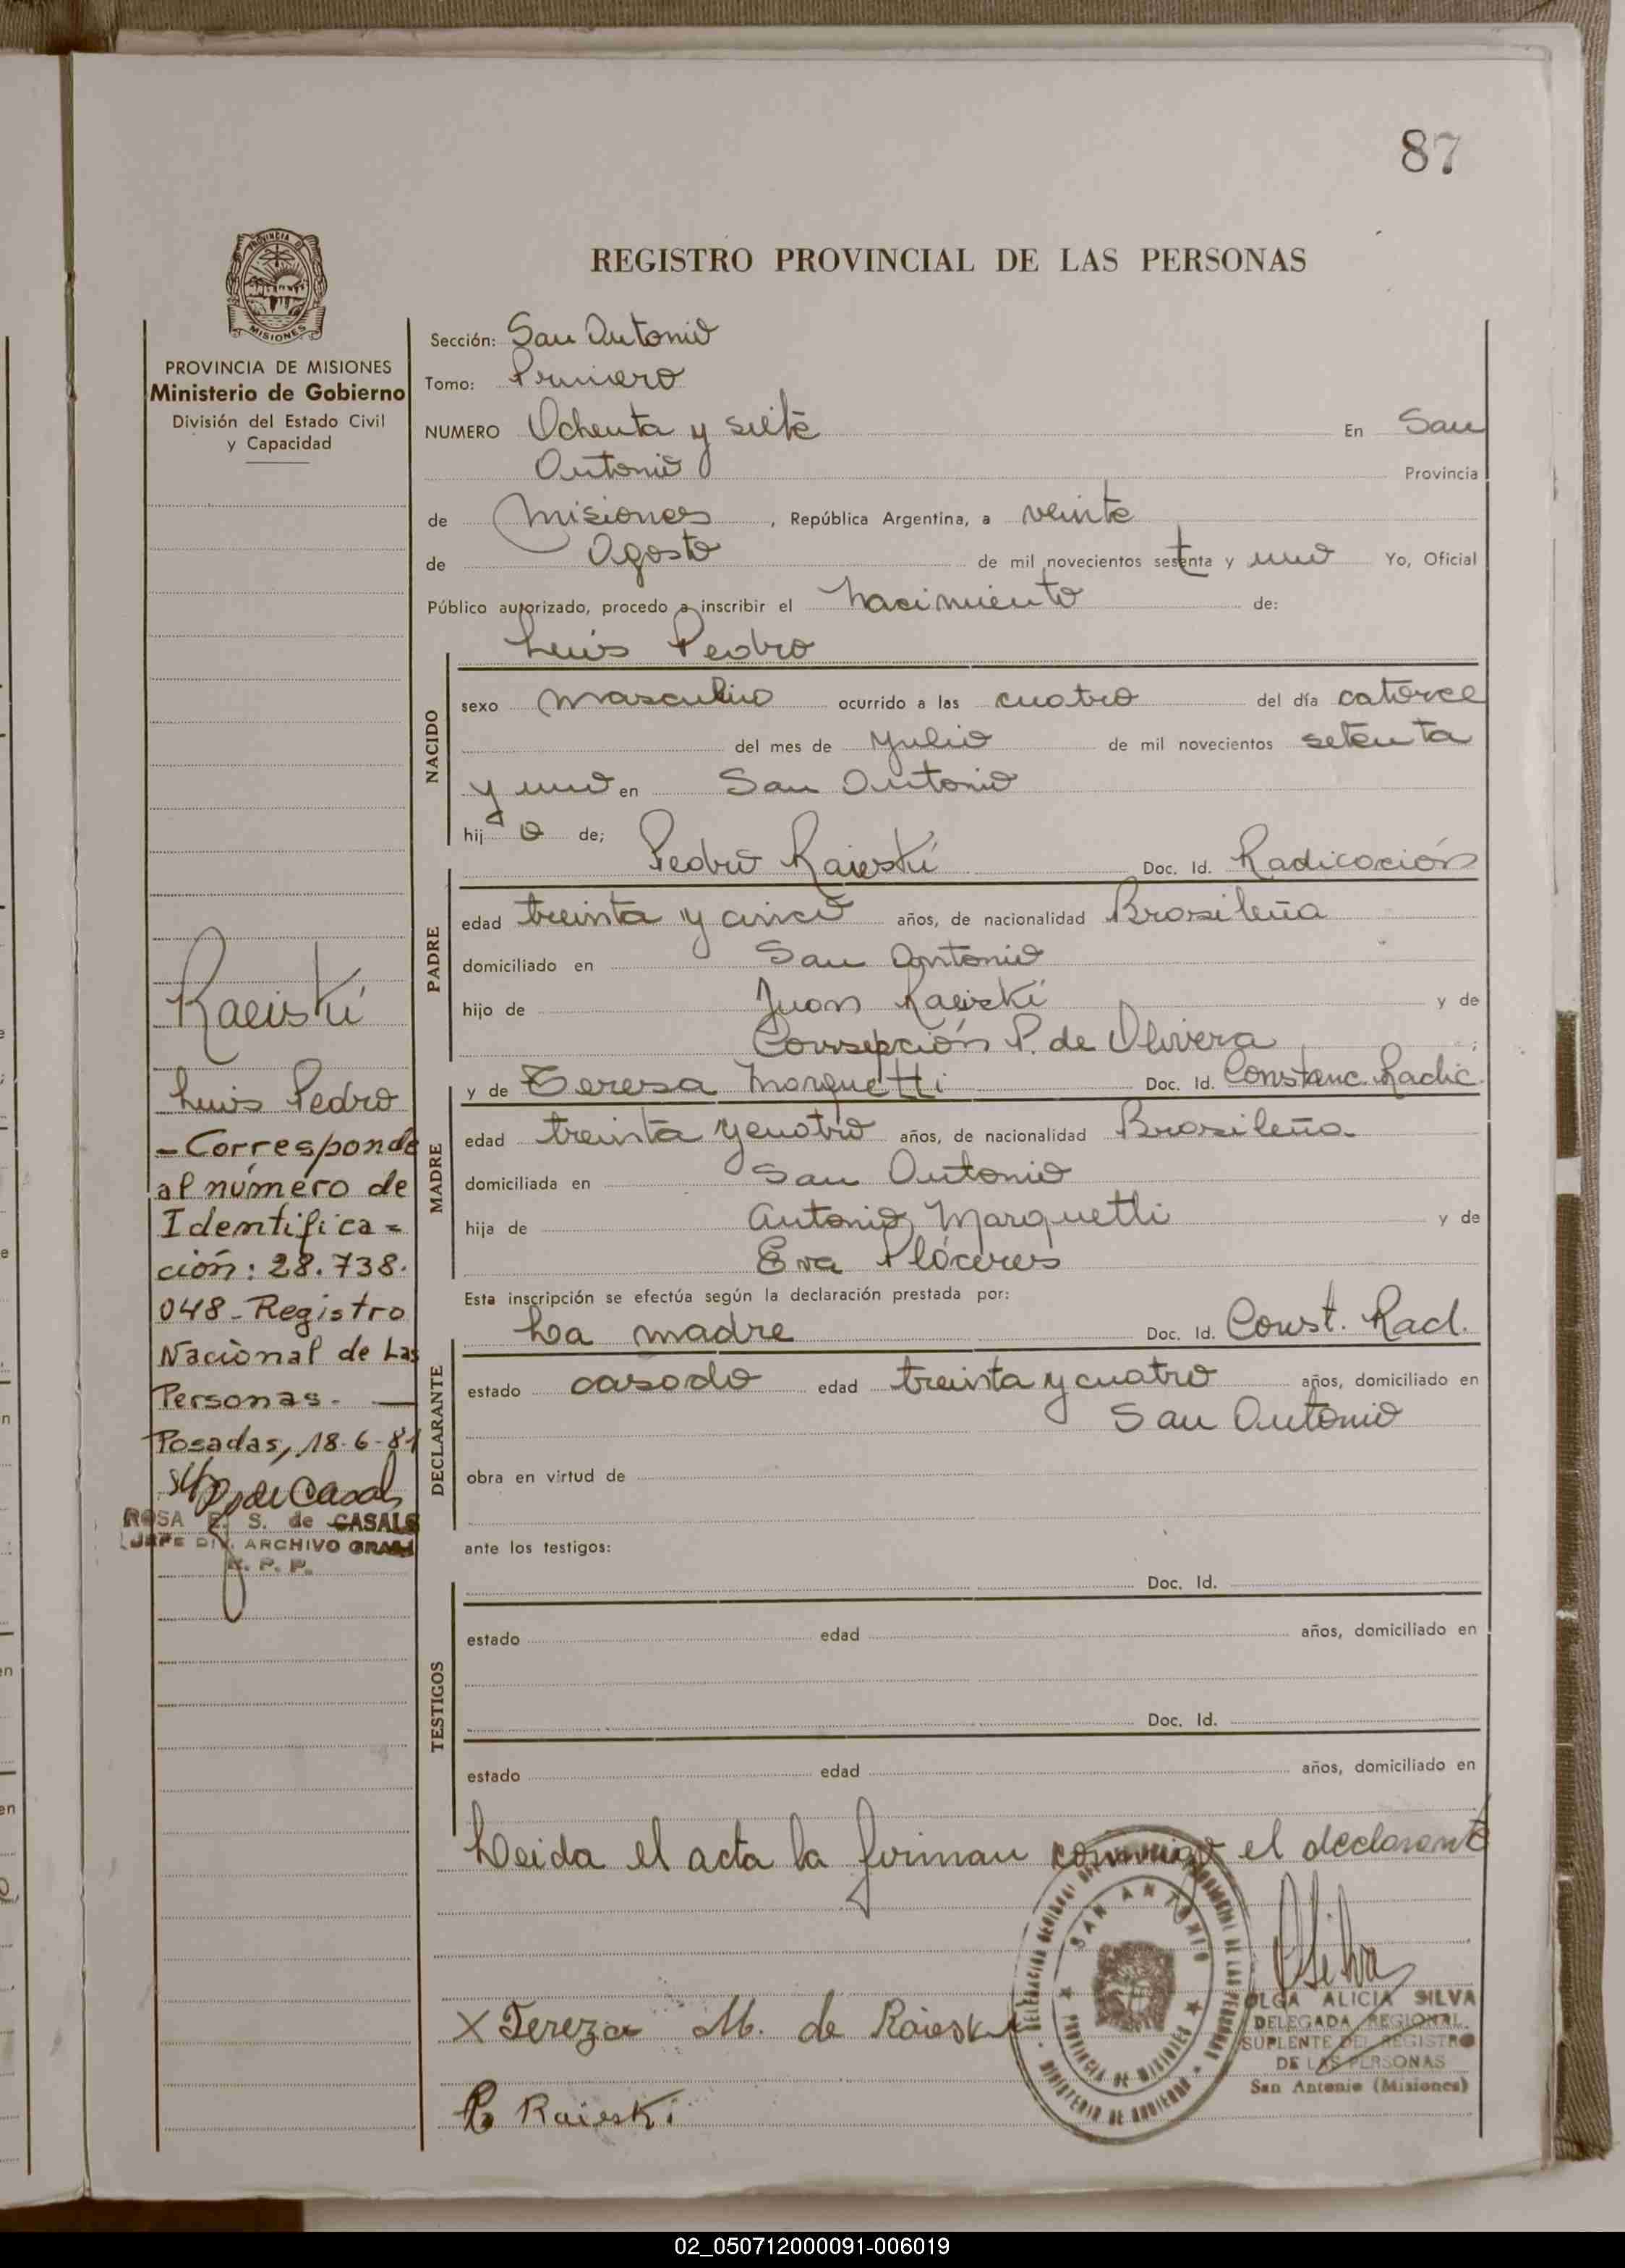 87
REGISTRO PROVINCIAL DE LAS PERSONAS
PROVINCIA DE
MISIONES
PROVINCIA DE MISIONES
Ministerio de Gobierno
División del Estado Civil
y Capacidad
Raeiskí
Luis Pedro
- Corresponde
al número de
Identifica=
ción: 28.738.
048 - Registro
Nacional de Las
Personas. —
Posadas, 18-6-81
de Casals
ROSA E. S. de CASALS
JEFE DIV. ARCHIVO GRAL
R. P. P.
Sección: San Antonio
Tomo: Primero
NUMERO Ochenta y siete En San
Antonio Provincia
de Misiones, República Argentina, a veinte
de Agosto de mil novecientos setenta y uno Yo, Oficial
Público autorizado, procedo a inscribir el nacimiento de:
Luis Pedro
NACIDO
sexo masculino ocurrido a las cuatro del día catorce
del mes de Julio de mil novecientos setenta
y uno en San Antonio
hijo de; Pedro Raieskí Doc. Id. Radicación
PADRE
edad treinta y cinco años, de nacionalidad Brasileña
domiciliado en San Antonio
hijo de Juan Raeiski y de
Consepción P. de Olivera;
y de Teresa Marquetti Doc. Id. Constanc. Radic.
MADRE
edad treinta y cuatro años, de nacionalidad Brasileña
domiciliada en San Antonio
hija de Antonio Marquetti y de
Eva Plóceres
Esta inscripción se efectúa según la declaración prestada por:
La madre Doc. Id. Const. Rad.
DECLARANTE
estado casado edad treinta y cuatro años, domiciliado en
San Antonio
obra en virtud de
ante los testigos:
Doc. Id.
TESTIGOS
estado edad años, domiciliado en
Doc. Id.
estado edad años, domiciliado en
Leida el acta la firman conmigo el declarante
SAN ANTONIO
PROVINCIA DE MISIONES
MINISTERIO DE GOBIERNO
OSilva
OLGA ALICIA SILVA
DELEGADA REGIONAL
SUPLENTE DEL REGISTRO
DE LAS PERSONAS
San Antonio (Misiones)
X Tereza M. de Raieski
P. Raieski
02_050712000091-006019